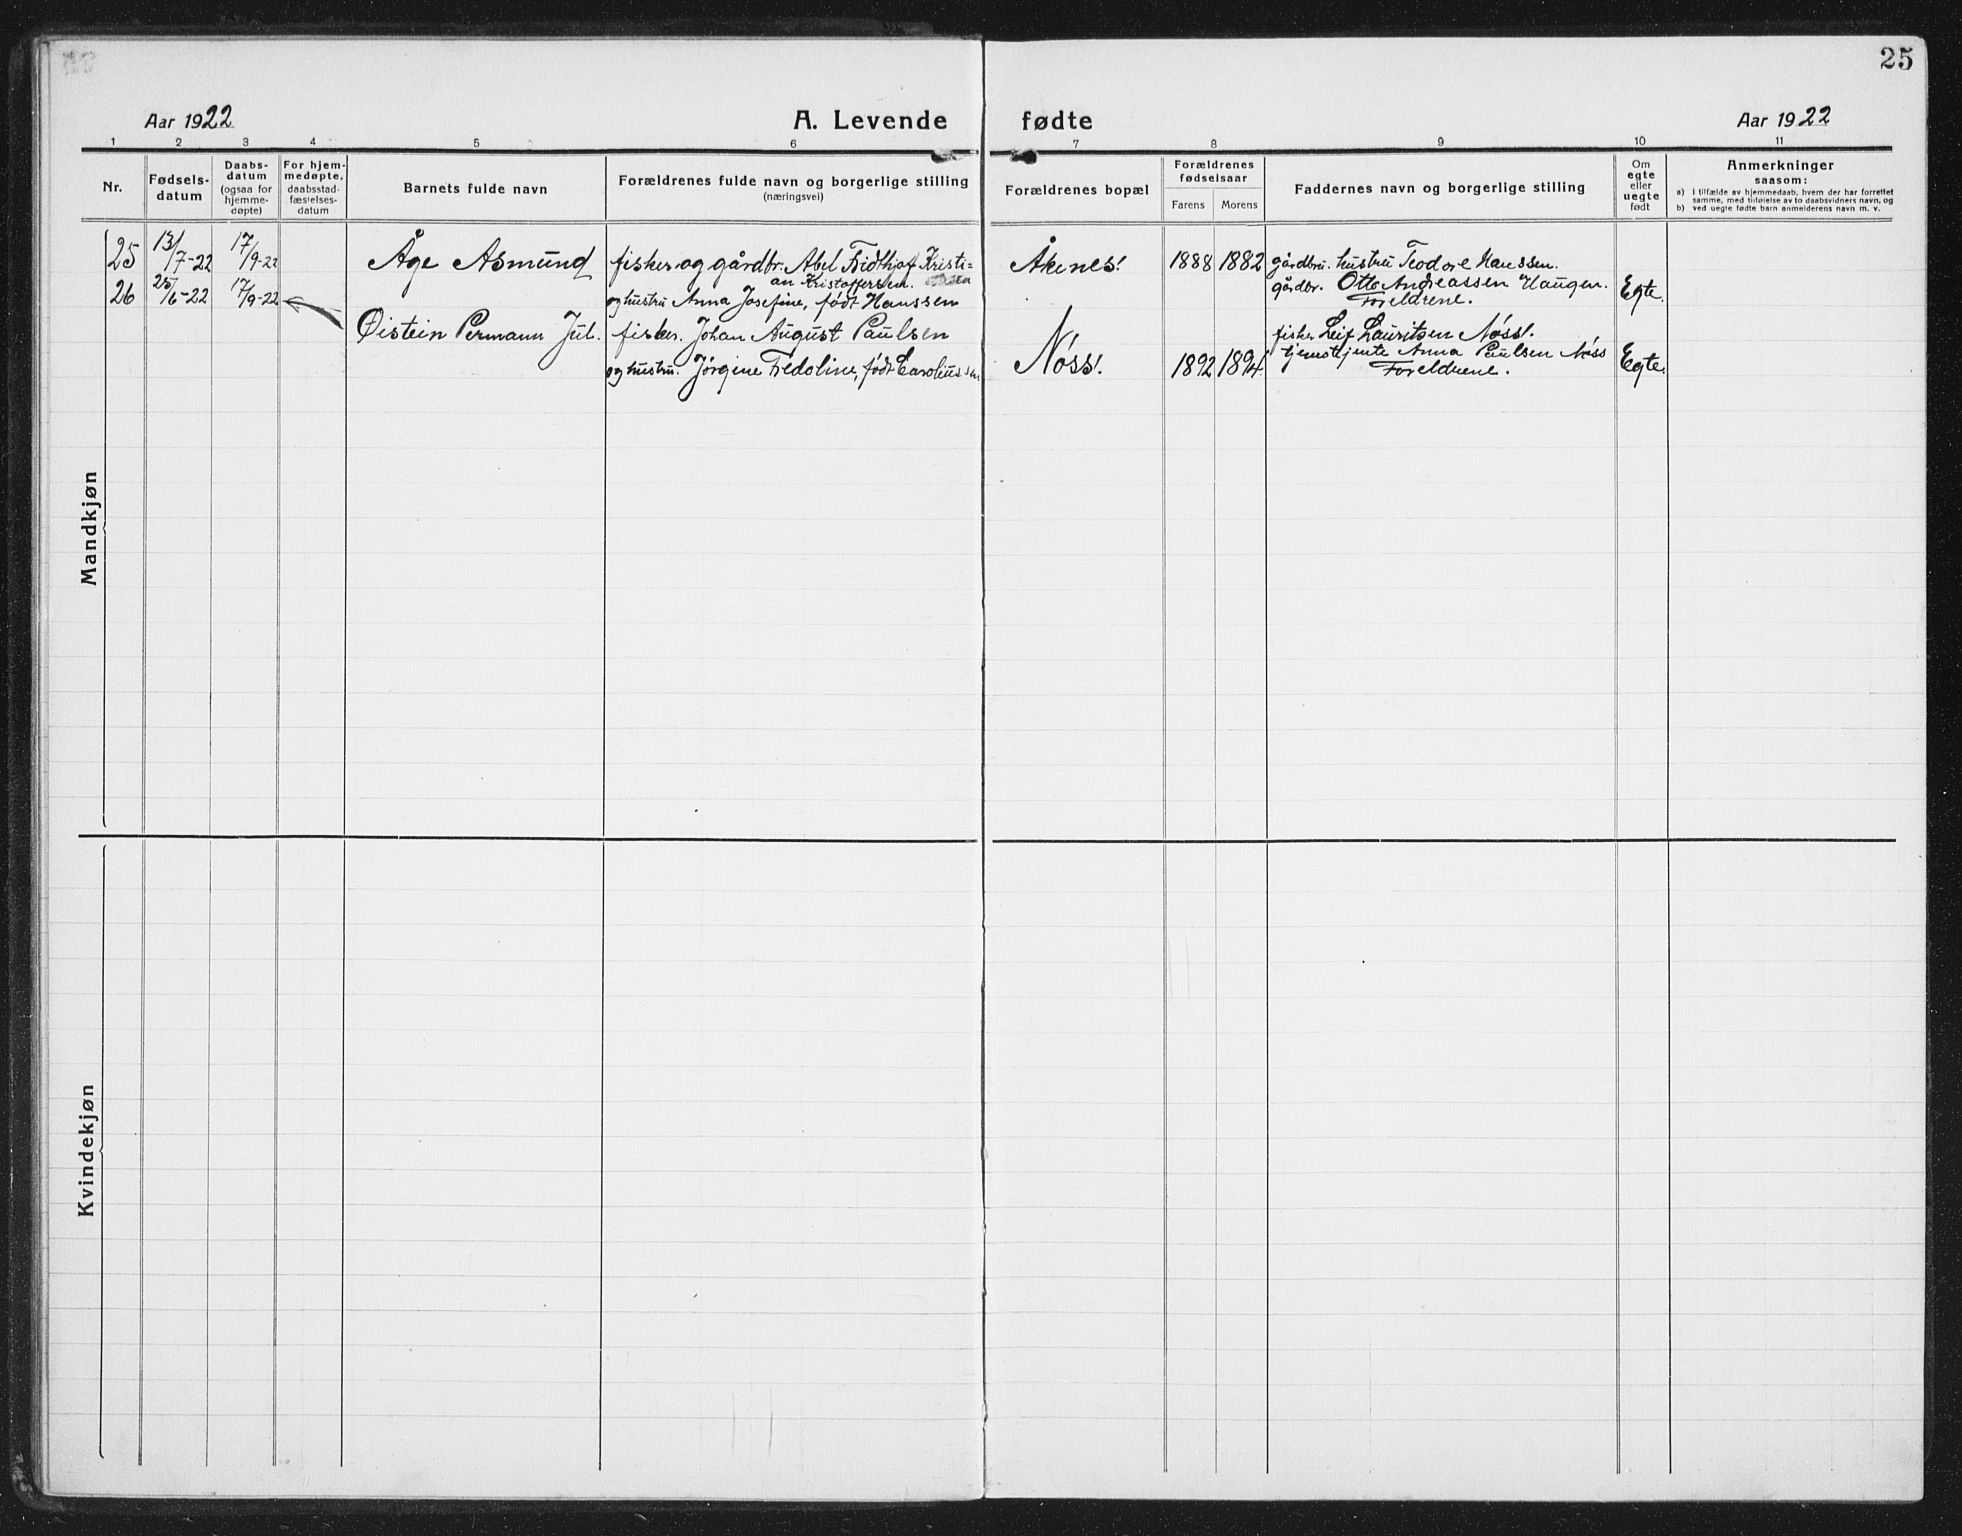 25
Aar 1922
A. Levende
fødte
Aar 1922
1 2 3 4 5 6 7 8 9 10 11
Nr.
Fødsels-
datum
Daabs-
datum
(ogsaa for
hjemme-
døpte)
For hjem-
medøpte,
daabsstad-
fæstelses-
datum
Barnets fulde navn
Forældrenes fulde navn og borgerlige stilling
(næringsvei)
Forældrenes bopæl
Forældrenes
fødselsaar
Farens Morens
Faddernes navn og borgerlige stilling
Om
egte
eller
uegte
født
Anmerkninger
saasom:
a) i tilfælde av hjemmedaab, hvem der har forrettet
samme, med tilføielse av to daabsvidners navn, og
b) ved uegte fødte barn anmelderens navn m. v.
Mandkjøn
25 13/7-22 17/9-22 Åge Asmund fisker og gårdbr. Abel Fridthjof Kristi=
an Kristoffersen.
og hustru Anna Josefine, født Hanssen
Åkenes. 1888 1882 gårdbru. hustru Teodore Hanssen.
gårdbr. Otto Andreassen Haugen.
Foreldrene.
Egte.
26 25/6-22 17/9-22 Øistein Permann Jul. fisker. Johan August Paulsen
og hustru. Jørgine Fredoline, født Caroliussen
Nøss. 1892 1894 fisker Leif Lauritsen Nøss.
Anna Paulsen Nøss
Foreldrene.
Egte.
Kvindekjøn